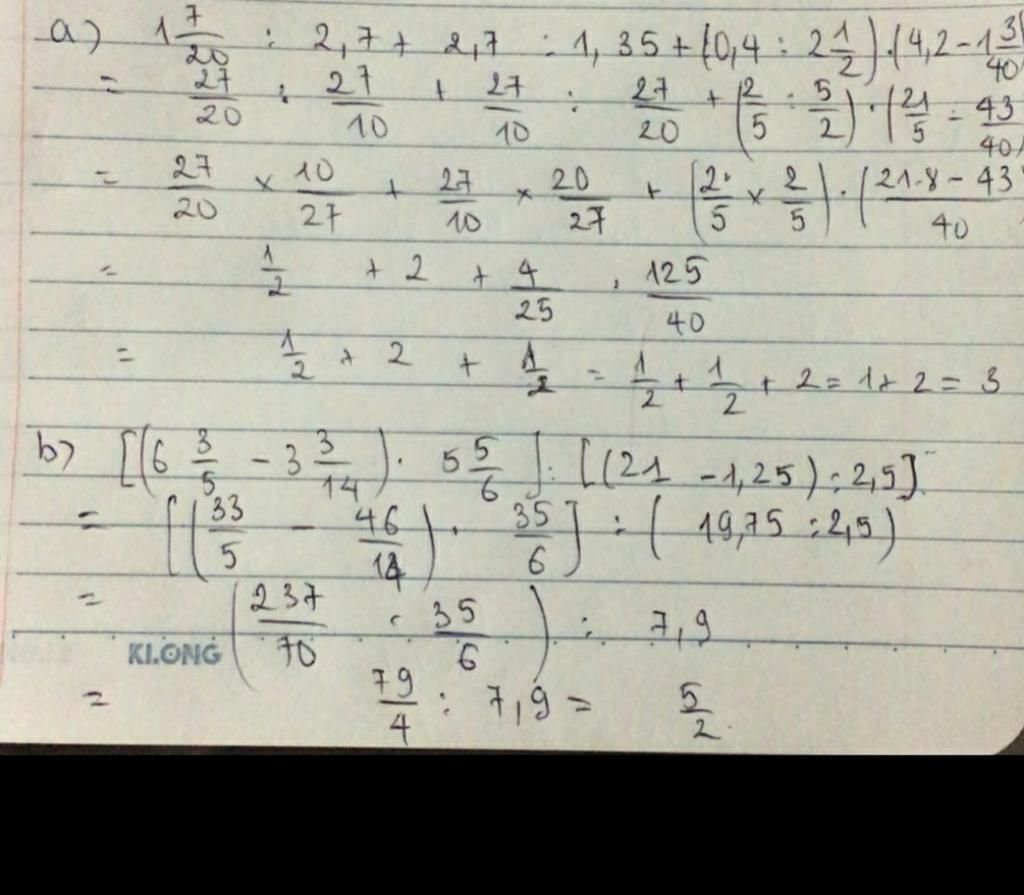 a) 1 7/20 : 2,7 + 2,7 : 1,35 + (0,4 : 2 1/2) . (4,2 - 1 3/40)
= 27/20 : 27/10 + 27/10 : 27/20 + (2/5 : 5/2) . (21/5 - 43/40)
= 27/20 × 10/27 + 27/10 × 20/27 + (2/5 × 2/5) . (21.8 - 43/40
= 1/2 + 2 + 4/25 . 125/40
= 1/2 + 2 + 1/2 = 1/2 + 1/2 + 2 = 1 + 2 = 3
b) [(6 3/5 - 3 3/14) . 5 5/6] : [(21 - 1,25) : 2,5]
= [(33/5 - 46/14) . 35/6] : (19,75 : 2,5)
= (237/70 . 35/6) : 7,9
KLONG
= 79/4 : 7,9 = 5/2.